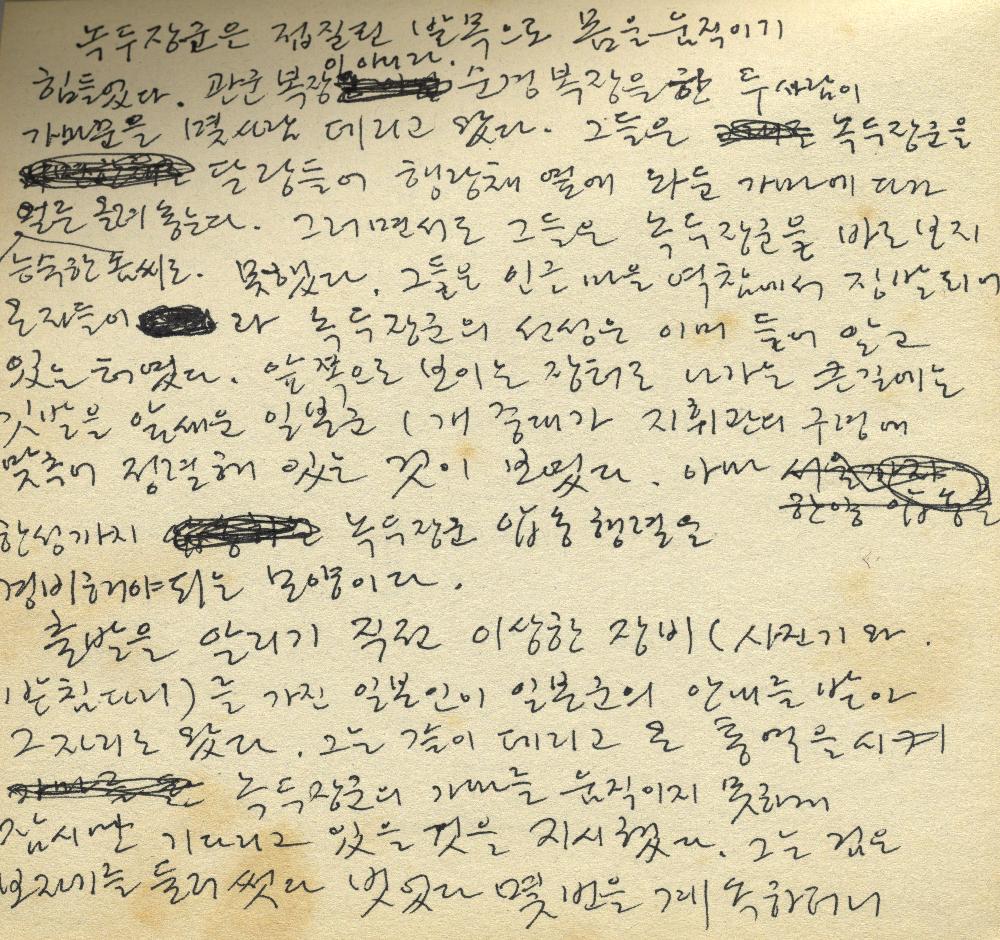 녹두장군은 접질린 발목으로 몸을 움직이기
이 아니라.
힘들었다. 관군 복장 순경 복장을 한 두 사람이
가마꾼을 몇 사람 데리고 왔다. 그들은 녹두장군을
달랑 들어 행랑채 옆에 와둔 가마에 다가
얼른 올려 놓는다. 그러면서도 그들은 녹두장군을 바로 보지
능숙한 솜씨로. 못했다. 그들은 인근 마을 역참에서 징발되어
온 자들이 라 녹두장군의 선성은 이미 들어 알고
있는 터였다. 앞쪽으로 보이는 장터로 나가는 큰길에는
깃발을 앞세운 일본군 1개 중대가 지휘관의 구령에
맞추어 정렬해 있는 것이 보였다. 아마 서울까지
한양 압송
한성까지 녹두장군 압송 행렬을
경비해야 되는 모양이다.
출발을 알리기 직전 이상한 장비(사진기와.
받침다리)를 가진 일본인이 일본군의 안내를 받아
그 자리로 왔다. 그는 같이 데리고 온 통역을 시켜
녹두장군의 가마를 움직이지 못하게
잠시만 기다리고 있을 것을 지시했다. 그는 검은
보자기를 둘러썼다 벗었다 몇 번을 계속하더니